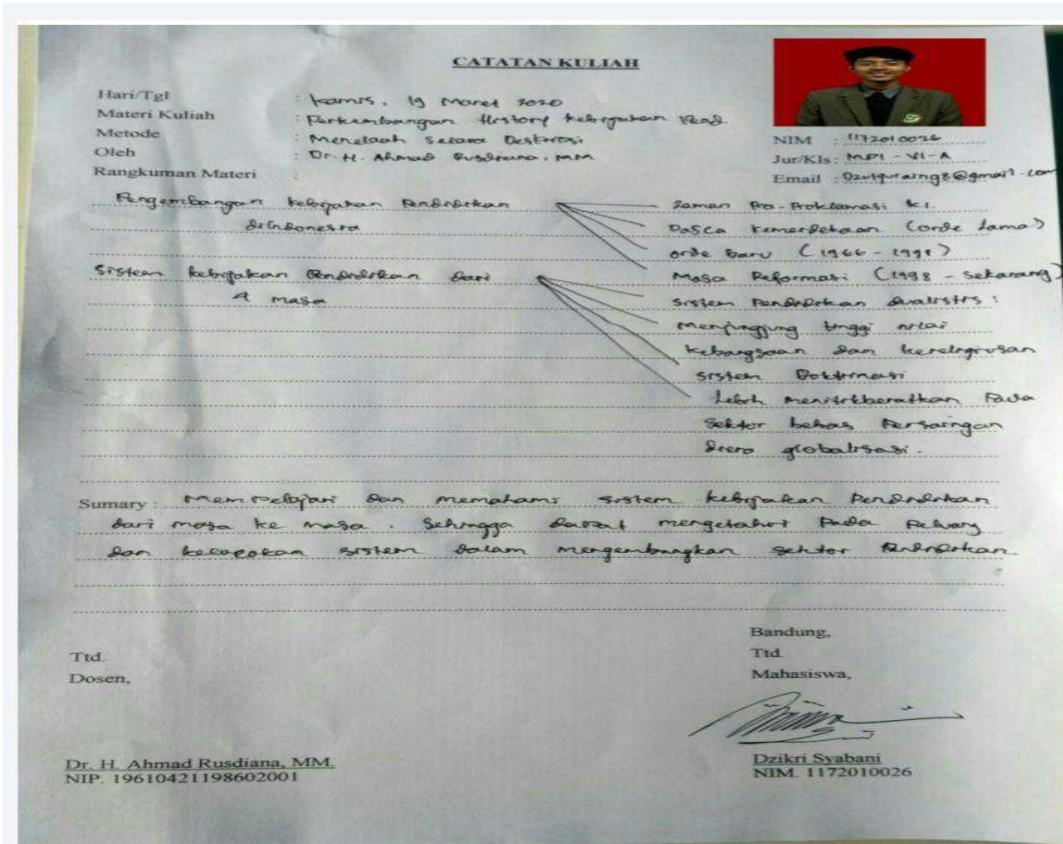 CATATAN KULIAH
Hari/Tgl : Kamis, 19 Maret 2020
Materi Kuliah : Perkembangan History kebijakan Pend.
Metode : Menelaah secara
Oleh : Dr. H. Ahmad Rusdiana, MM
Rangkuman Materi :
NIM : 1172010026
Jur/Kls : MPI - VI - A
Email :
Pengembangan kebijakan Pendidikan
diindonesia
Zaman Pra-Proklamasi k1.
Pasca kemerdekaan (orde lama)
orde baru (1966 - 1998)
Masa Reformasi (1998 - sekarang)
Sistem kebijakan Pendidikan dari
4 masa
sistem Pendidikan dualistis :
menjungjung tinggi nilai
kebangsaan dan kereligiusan
sistem Doktrinasi
Lebih menitikberatkan Pada
Sektor bebas Persaingan
diera globalisasi.
Sumary : Mempelajari dan memahami sistem kebijakan Pendidikan
dari masa ke masa . Sehingga dapat mengetahui Pada Peluang
dan sistem dalam mengembangkan sektor Pendidikan
Bandung,
Ttd.
Dosen,
Ttd.
Mahasiswa,
Dr. H. Ahmad Rusdiana, MM.
NIP. 19610421198602001
Dzikri Syabani
NIM. 1172010026